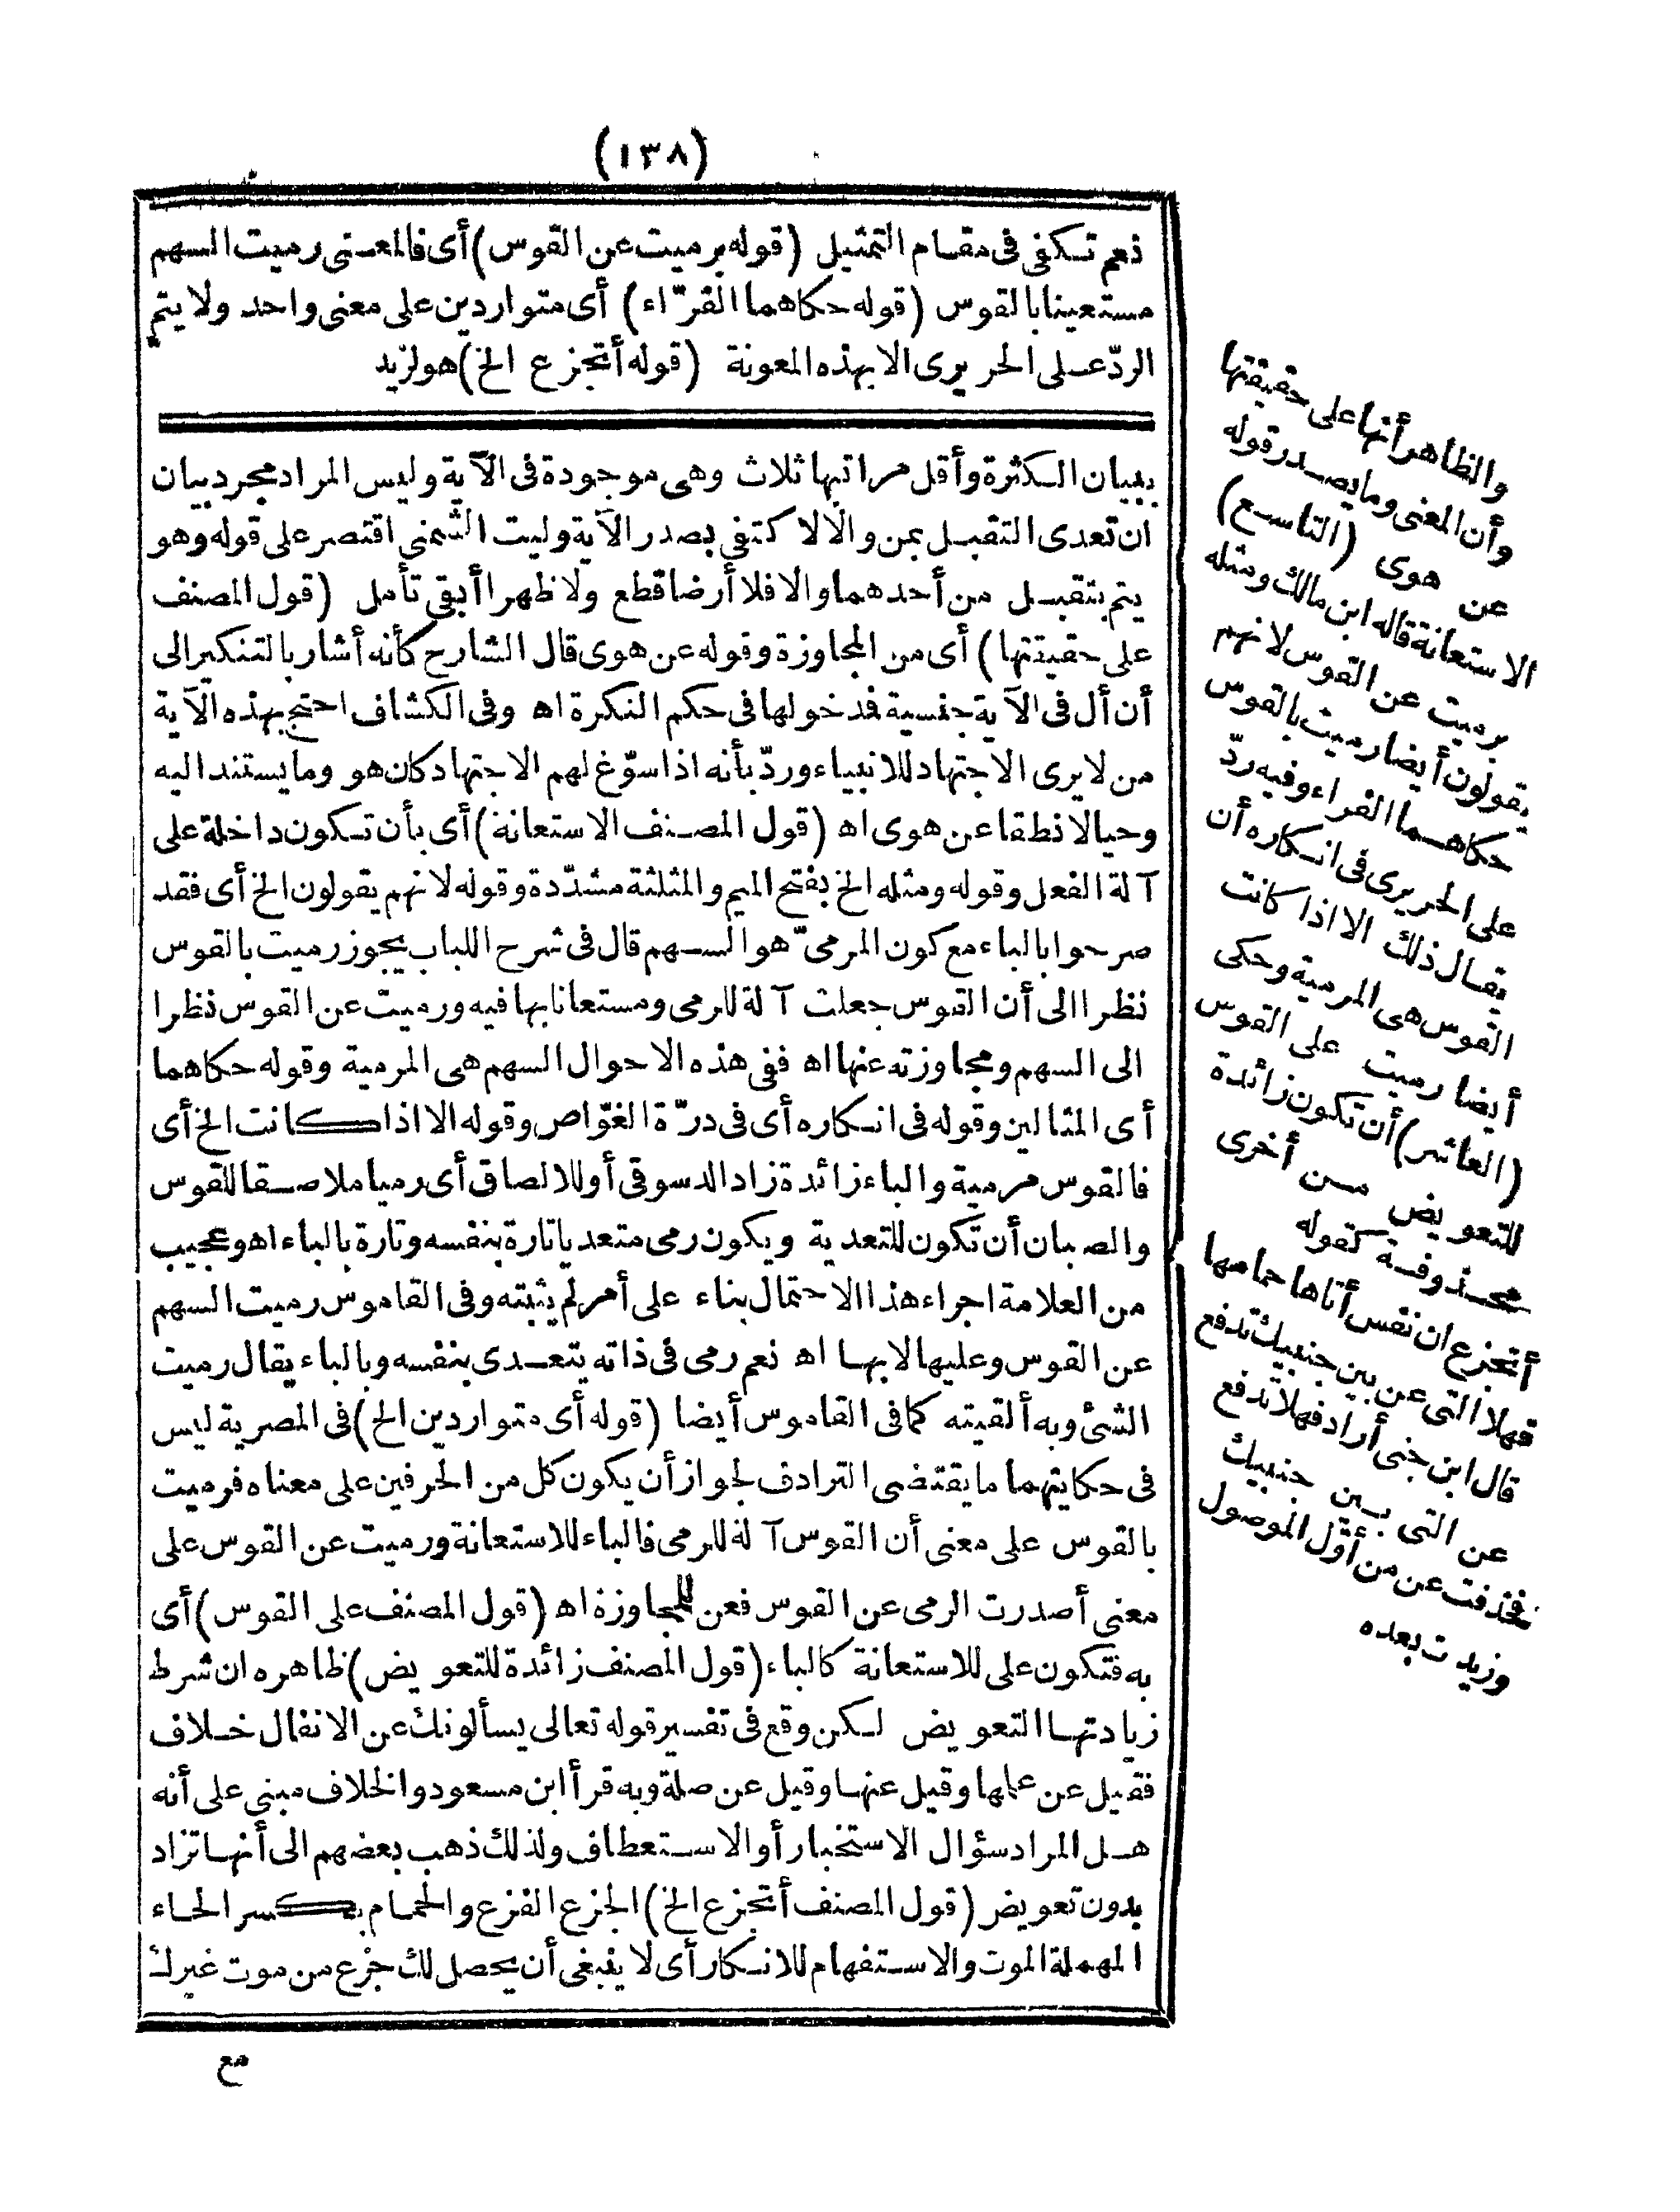 (١٣٨)
نعم تكفى فى مقام التمثيل (قوله برميت عن القوس) أى فالمعنى رميت السهم
مستعينا بالقوس (قوله حكاهما الفرّاء) أى متواردين على معنى واحد ولا يتم
الردّ على الحريرى الا بهذه المعونة (قوله أتجزع الخ) هو لزيد
ببيان الكثرة وأقل مراتبها ثلاث وهى موجودة فى الآية وليس المراد مجرد بيان
ان تعدى التقبل بمن والا لاكتفى بصدر الآية وليت الشمنى اقتصر على قوله وهو
يتم بتقبل من أحدهما والا فلا أرضا قطع ولا ظهرا أبقى تأمل (قول المصنف
على حقيقتها) أى من المجاوزة وقوله عن هوى قال الشارح كأنه أشار بالتنكير الى
أن أل فى الآية جنسية فمدخولها فى حكم النكرة اه وفى الكشاف احتج بهذه الآية
من لا يرى الاجتهاد للانبياء وردّ بأنه اذا سوّغ لهم الاجتهاد كان هو وما يستند اليه
وحيا لا نطقا عن هوى اه (قول المصنف الاستعانة) أى بأن تكون داخلة على
آلة الفعل وقوله ومثله الخ بفتح الميم والمثلثة مشدّدة وقوله لانهم يقولون الخ أى فقد
صرحوا بالباء مع كون المرمىّ هو السهم قال فى شرح اللباب يجوز رميت بالقوس
نظرا الى أن القوس جعلت آلة للرمى ومستعانا بها فيه ورميت عن القوس نظرا
الى السهم ومجاوزته عنها اه ففى هذه الاحوال السهم هى المرمية وقوله حكاهما
أى المثالين وقوله فى انكاره أى فى درّة الغوّاص وقوله الا اذا كانت الخ أى
فالقوس مرمية والباء زائدة زاد الدسوقى أو للالصاق أى رميا ملاصقا للقوس
والصبان أن تكون للتعدية ويكون رمى متعديا تارة بنفسه وتارة بالباء اه وعجيب
من العلامة اجراء هذا الاحتمال بناء على أمر لم يثبته وفى القاموس رميت السهم
عن القوس وعليها لا بها اه نعم رمى فى ذاته يتعدى بنفسه وبالباء يقال رميت
الشئ وبه ألقيته كما فى القاموس أيضا (قوله أى متواردين الخ) فى المصرية ليس
فى حكايتهما ما يقتضى الترادف لجواز أن يكون كل من الحرفين على معناه فرميت
بالقوس على معنى أن القوس آلة للرمى فالباء للاستعانة ورميت عن القوس على
معنى أصدرت الرمى عن القوس فعن للمجاوزة اه (قول المصنف على القوس) أى
به فتكون على للاستعانة كالباء (قول المصنف زائدة للتعويض) ظاهره ان شرط
زيادتها التعويض لكن وقع فى تفسير قوله تعالى يسألونك عن الانفال خلاف
فقيل عن علمها وقيل عنها وقيل عن صلة وبه قرأ ابن مسعود والخلاف مبنى على أنه
هل المراد سؤال الاستخبار أو الاستعطاف ولذلك ذهب بعضهم الى أنها تزاد
بدون تعويض (قول المصنف أتجزع الخ) الجزع الفزع والحمام بكسر الحاء
المهملة الموت والاستفهام للانكار أى لا ينبغى أن يحصل لك جزع من موت غيرك
مع
والظاهر أنها على حقيقتها
وأن المعنى وما يصدر قوله
عن هوى (التاسع)
الاستعانة قاله ابن مالك ومثله
برميت عن القوس لانهم
يقولون أيضا رميت بالقوس
حكاهما الفراء وفيه ردّ
على الحريرى فى انكاره أن
يقال ذلك الا اذا كانت
القوس هى المرمية وحكى
أيضا رميت على القوس
(العاشر) أن تكون زائدة
للتعويض من أخرى
محذوفة كقوله
أتجزع ان نفس أتاها حمامها
فهلا التى عن بين جنبيك تدفع
قال ابن جنى أراد فهلا تدفع
عن التى بين جنبيك
فحذفت عن من أوّل الموصول
وزيدت بعده